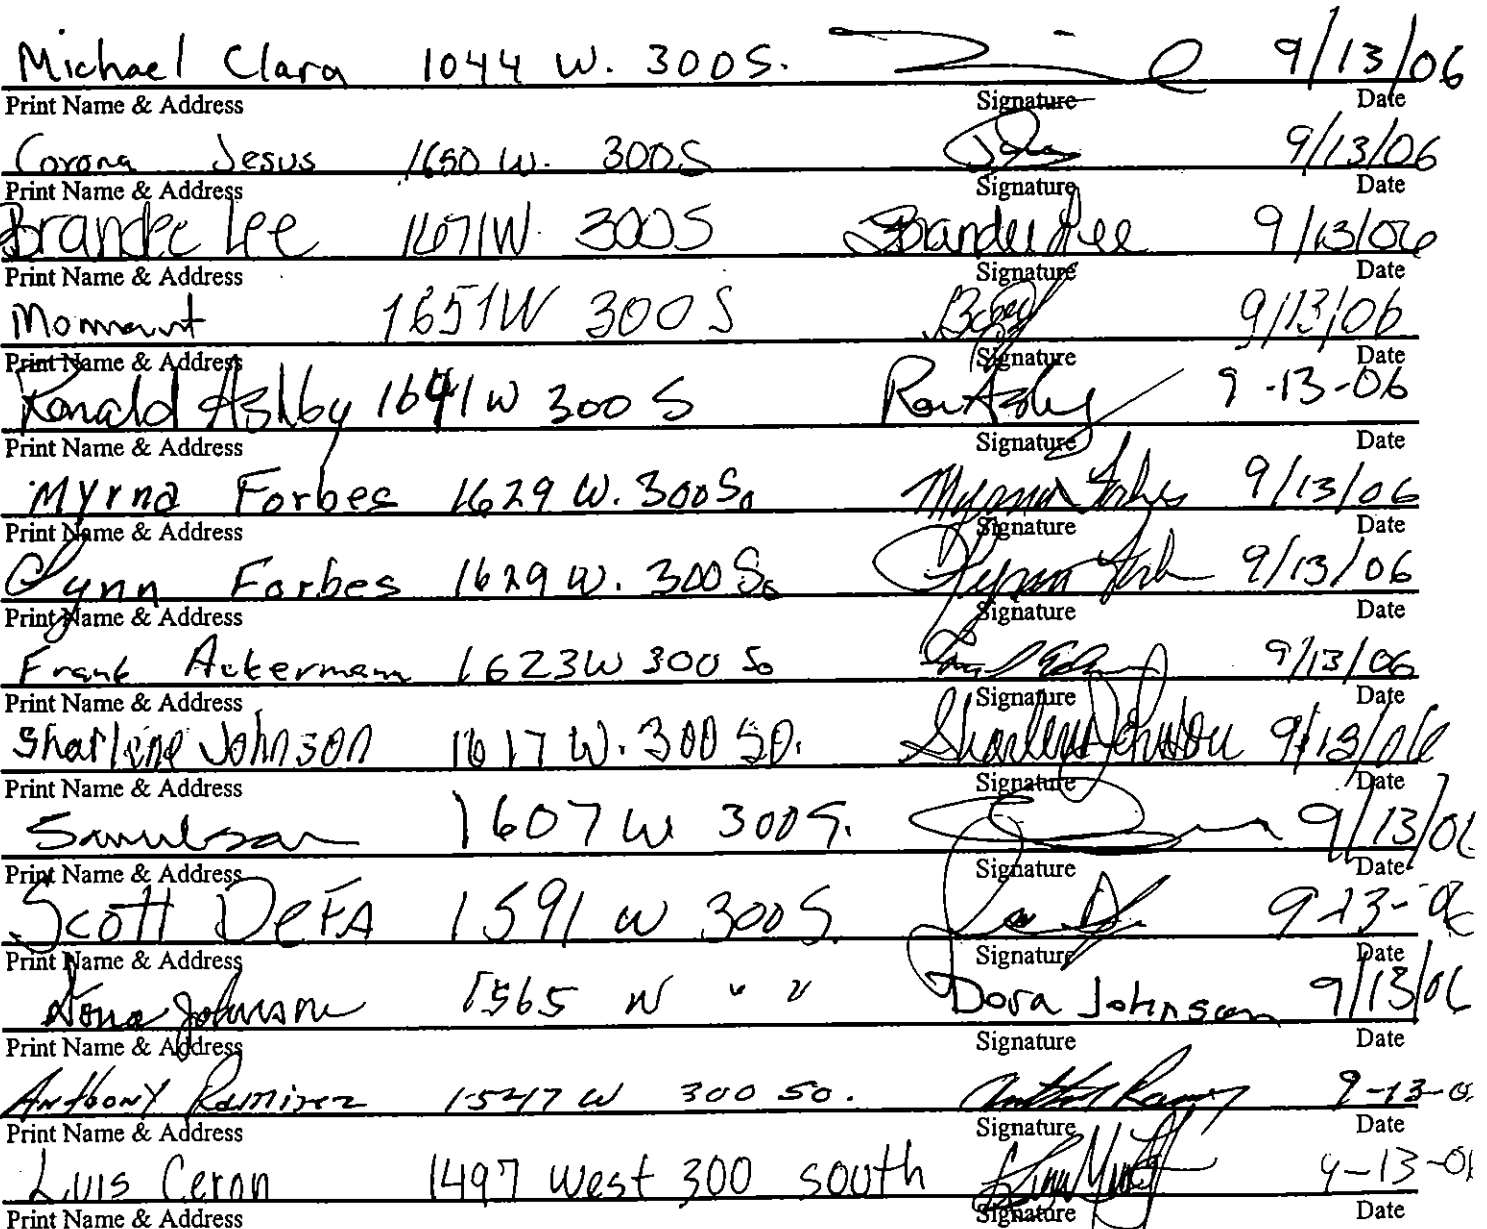 Michael Clara 1044 W. 300 S. 9/13/06
Print Name & Address Signature Date
Corona Jesus 1650 W. 300 S 9/13/06
Print Name & Address Signature Date
Brandee Lee 1671 W. 300 S Brandee Lee 9/13/06
Print Name & Address Signature Date
1651 W 300 S 9/13/06
Print Name & Address Signature Date
Ronald Ashby 1641 W 300 S Ron Ashby 9-13-06
Print Name & Address Signature Date
Myrna Forbes 1629 W. 300 So Myrna Forbes 9/13/06
Print Name & Address Signature Date
Glynn Forbes 1629 W. 300 So 9/13/06
Print Name & Address Signature Date
Frank Ackermann 1623 W 300 So 9/13/06
Print Name & Address Signature Date
Sharlene Johnson 1617 W. 300 SO. Sharlene Johnson 9/13/06
Print Name & Address Signature Date
1607 W 300 S. 9/13/0
Print Name & Address Signature Date
Scott DeFA 1591 W 300 S. 9-13-0
Print Name & Address Signature Date
Johnson 1565 W " " Dora Johnson 9/13/0
Print Name & Address Signature Date
Anthony Ramirez 1547 W 300 SO. 9-13-0
Print Name & Address Signature Date
Luis Ceron 1497 West 300 South 9-13-0
Print Name & Address Signature Date